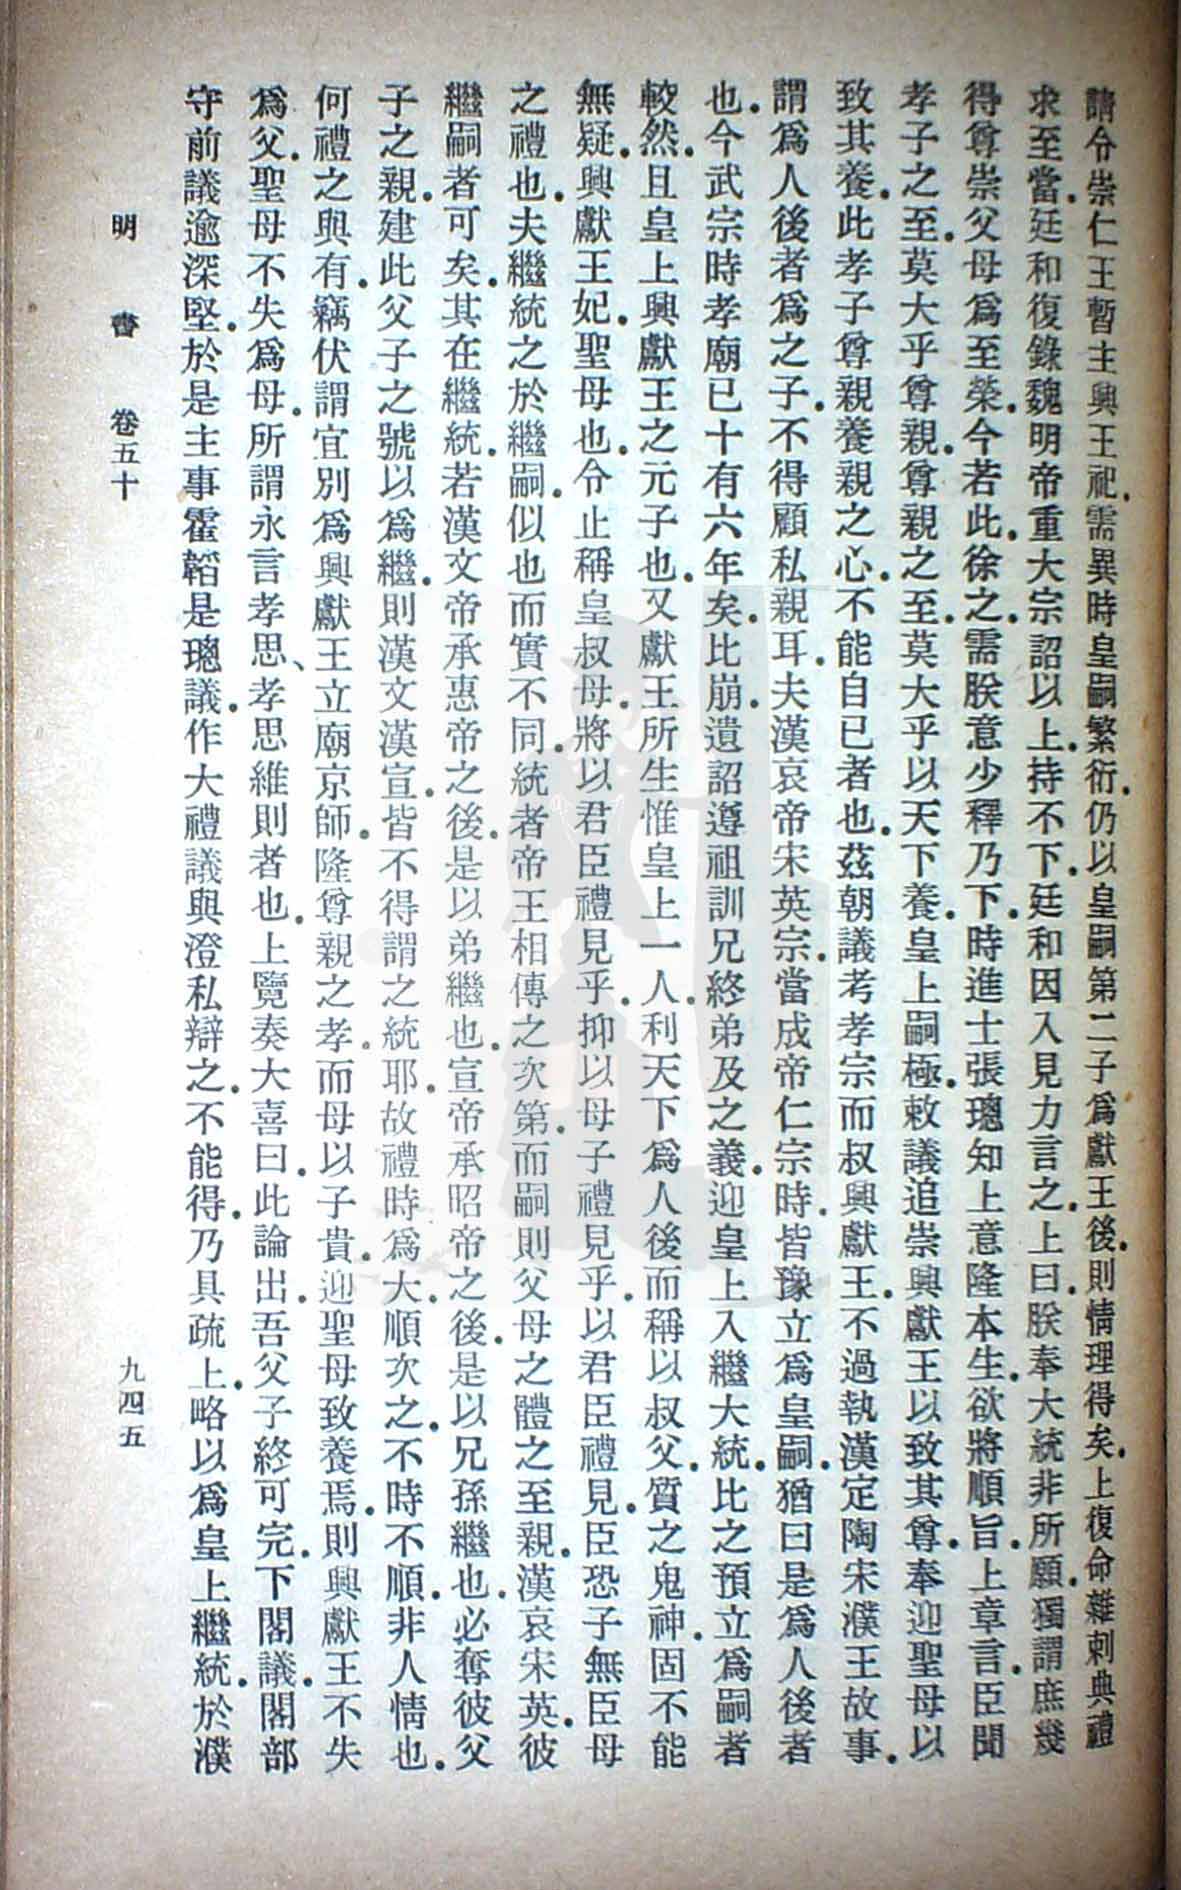 請令崇仁王暫主興王祀.需異時皇嗣繁衍.仍以皇嗣第二子爲獻王後.則情理得矣.上復命雜剌典禮
求至當.廷和復錄魏明帝重大宗詔以上.持不下.廷和因入見力言之.上曰.朕奉大統非所願.獨謂庶幾
得尊崇父母爲至榮.今若此.徐之.需朕意少釋乃下.時進士張璁知上意隆本生.欲將順旨.上章言.臣聞
孝子之至.莫大乎尊親.尊親之至.莫大乎以天下養.皇上嗣極.敕議追崇興獻王以致其尊.奉迎聖母以
致其養.此孝子尊親養親之心.不能自已者也.茲朝議考孝宗而叔興獻王.不過執漢定陶宋濮王故事.
謂爲人後者爲之子.不得顧私親耳.夫漢哀帝宋英宗.當成帝仁宗時.皆豫立爲皇嗣.猶曰是爲人後者
也.今武宗時孝廟已十有六年矣.比崩.遺詔遵祖訓兄終弟及之義.迎皇上入繼大統.比之預立爲嗣者
較然.且皇上興獻王之元子也.又獻王所生惟皇上一人.利天下爲人後而稱以叔父.質之鬼神.固不能
無疑.興獻王妃.聖母也.今止稱皇叔母.將以君臣禮見乎.抑以母子禮見乎.以君臣禮見.臣恐子無臣母
之禮也.夫繼統之於繼嗣.似也而實不同.統者帝王相傳之次第.而嗣則父母之體之至親.漢哀宋英.彼
繼嗣者可矣.其在繼統.若漢文帝承惠帝之後.是以弟繼也.宣帝承昭帝之後.是以兄孫繼也.必奪彼父
子之親.建此父子之號以爲繼.則漢文漢宣.皆不得謂之統耶.故禮時爲大.順次之.不時不順.非人情也.
何禮之與有.竊伏謂宜別爲興獻王立廟京師.隆尊親之孝.而母以子貴.迎聖母致養焉.則興獻王不失
爲父.聖母不失爲母.所謂永言孝思、孝思維則者也.上覽奏大喜曰.此論出.吾父子終可完.下閣議.閣部
守前議逾深堅.於是主事霍韜是璁議.作大禮議與澄私辯之.不能得.乃具疏上.略以爲皇上繼統.於濮
明書 卷五十
九四五